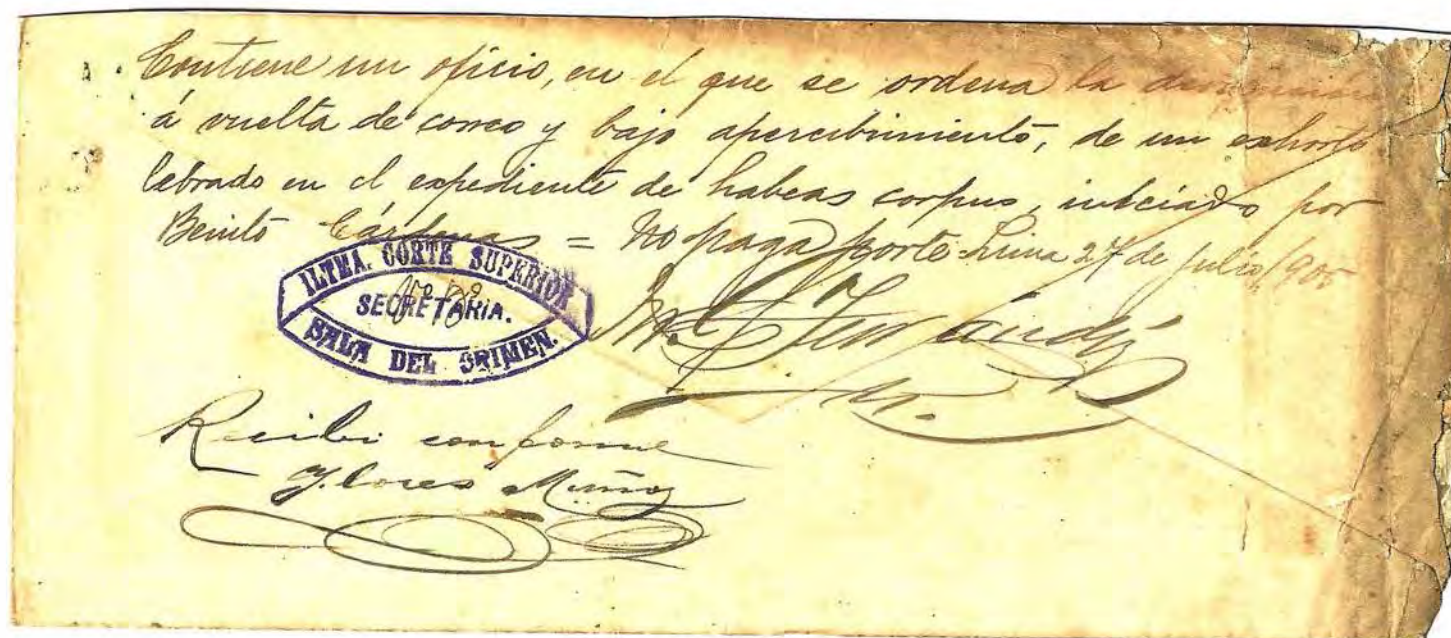 Contiene un oficio, en el que se ordena la devolución
á vuelta de correo y bajo apercibimiento, de un exhorto
librado en el expediente de habeas corpus, iniciado por
Benito Cárdenas = No paga porte. Lima 27 de julio/905
ILTMA. CORTE SUPERIOR
SECRETARIA.
SALA DEL CRIMEN.
Recibí conforme
Flores Muñoz